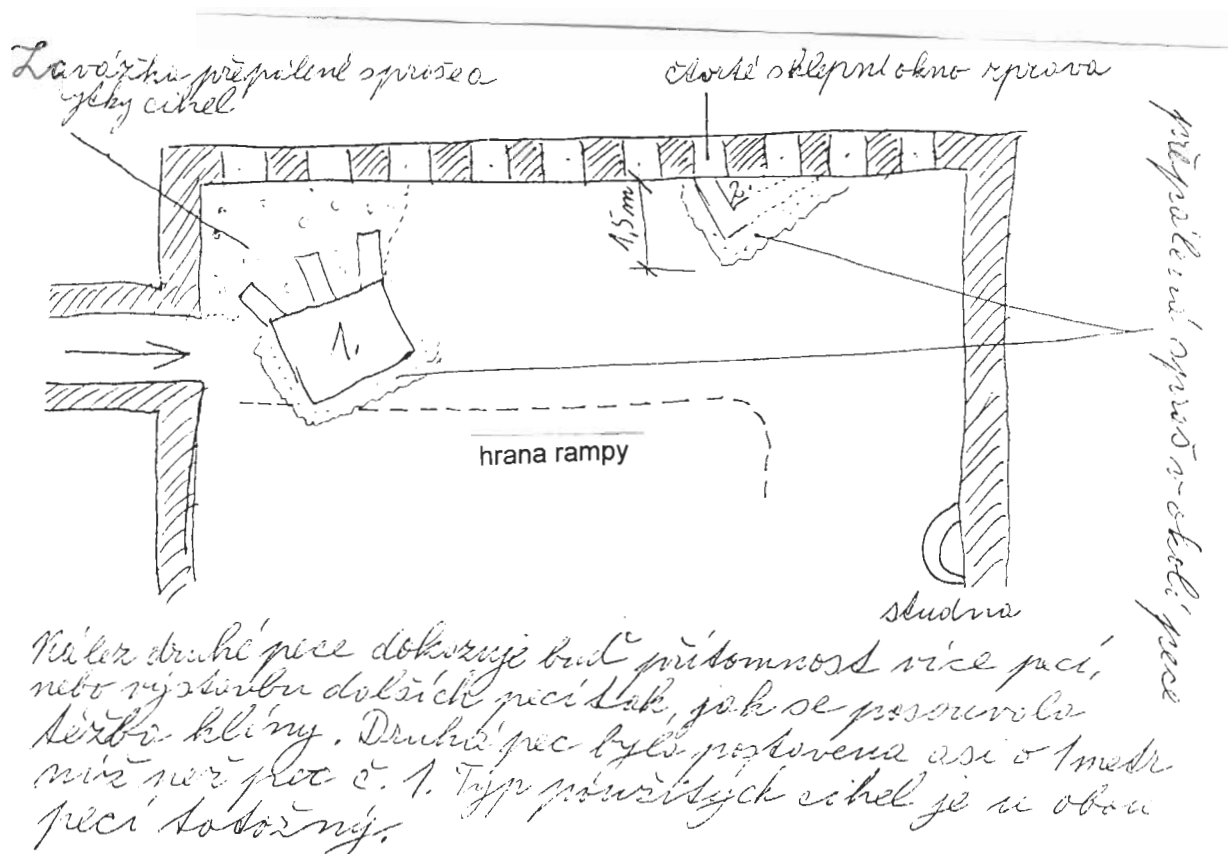 Zavážka přepálené spraše a
zbytky cihel
čtvrté sklepní okno zprava
přepálená spraš v okolí pece
1,5m
2.
1.
hrana rampy
studna
Nález druhé pece dokazuje buď přítomnost více pecí,
nebo výstavbu dalších pecí tak, jak se posouvala
těžba hlíny. Druhá pec byla postavena asi o 1 metr
níž než pec č. 1. Typ použitých cihel je u obou
pecí totožný.